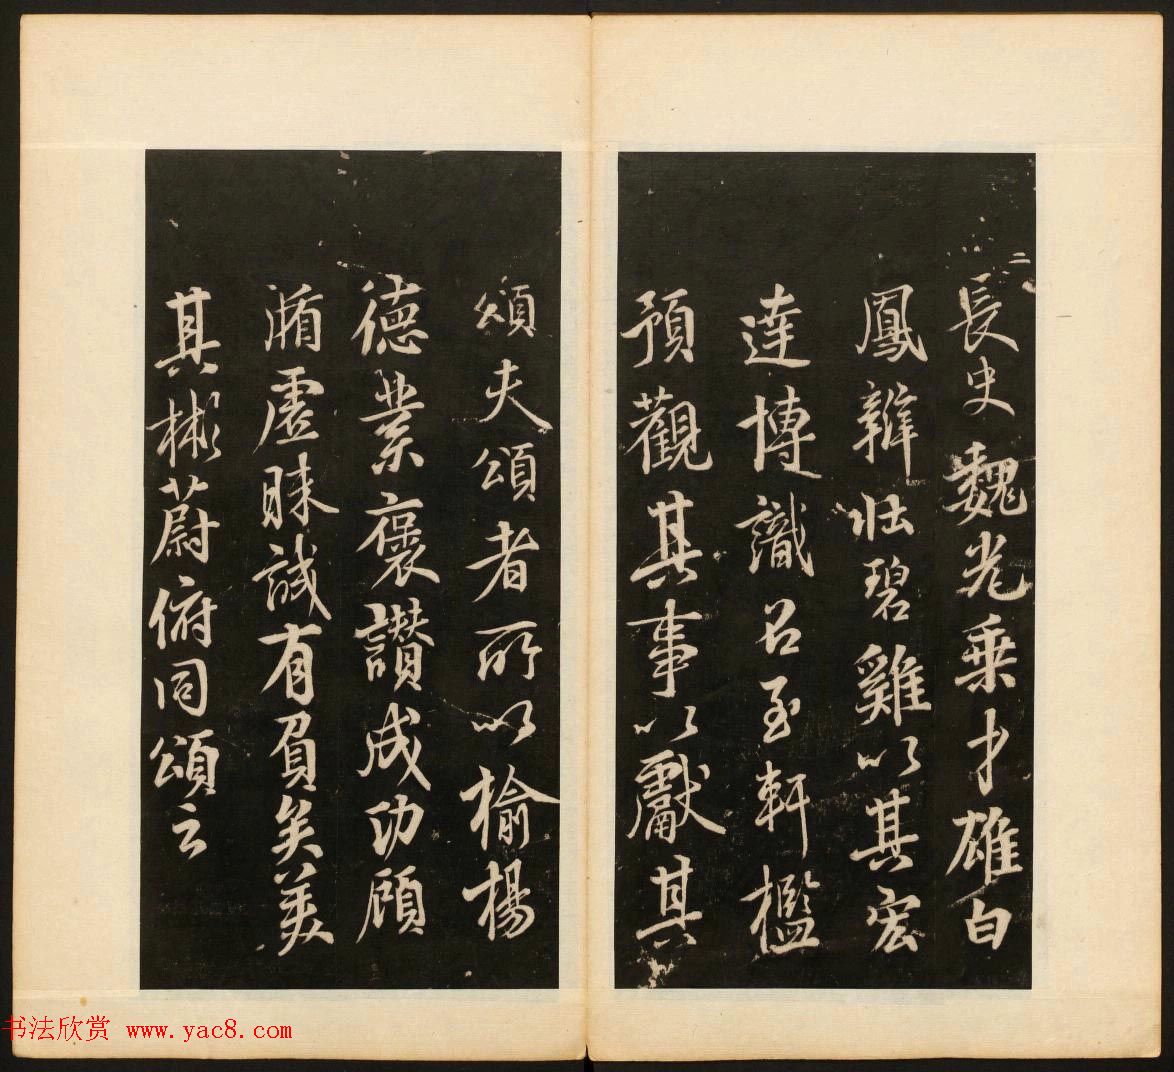 二
長史魏光乗才雄白
鳳辯壯碧雞以其宏
達博識召至軒檻
預觀其事以獻其
頌夫頌者所以榆楊
德業褒讃成功顧
循虛昧誠有負矣美
其彬蔚俯同頌云
书法欣赏 www.yac8.com